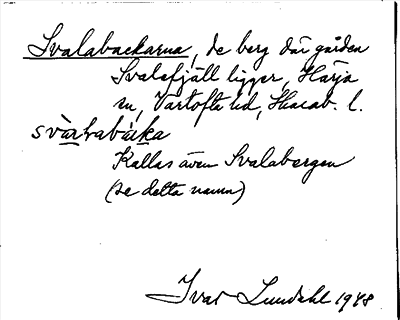 Svalabackarna, de berg där gården
Svalefjäll ligger, Härja
sn, Vartofta hd, Skarab. l.
svàlabàka
Kallas även Svalabergen
(se detta namn)
Ivar Lundahl 1948